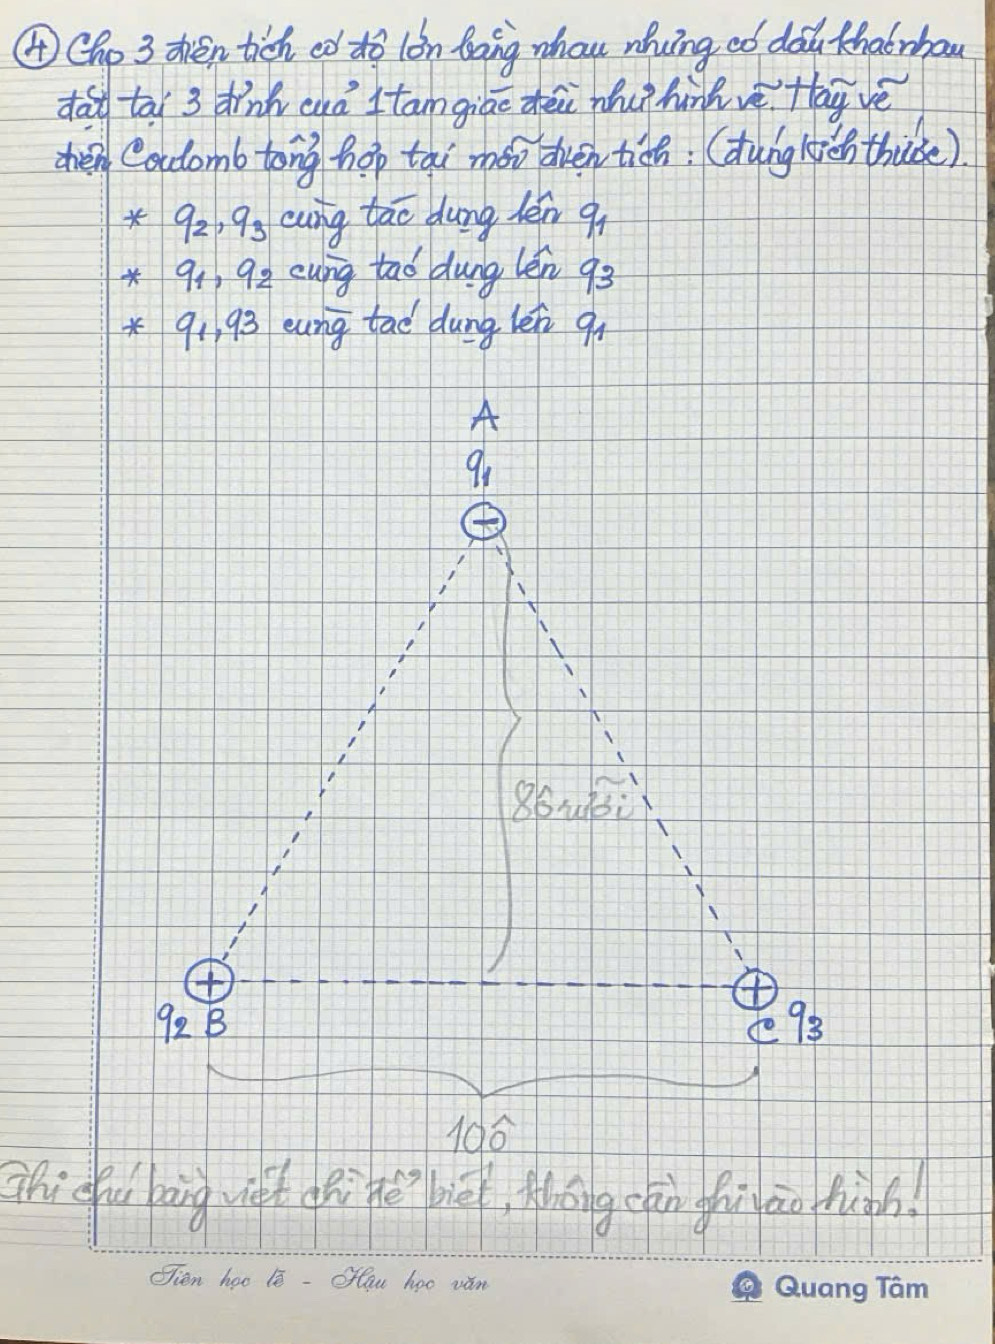 ④ Cho 3 điện tích có độ lớn bằng nhau nhưng có dấu khác nhau
đặt tại 3 đỉnh của 1 tam giác đều như hình vẽ. Hãy vẽ
điện Coulomb tổng hợp tại mỗi điện tích: (đúng kích thước).
* q2, q3 cùng tác dụng lên q1
* q1, q2 cùng tác dụng lên q3
* q1, q3 cùng tác dụng lên q1
A
q1
−
8ô rưỡi
+ +
q2 B C q3
10ô
Ghi chú bằng viết chì để biết, không cần ghi vào hình!
Tiên học lễ - Hậu học văn Quang Tâm